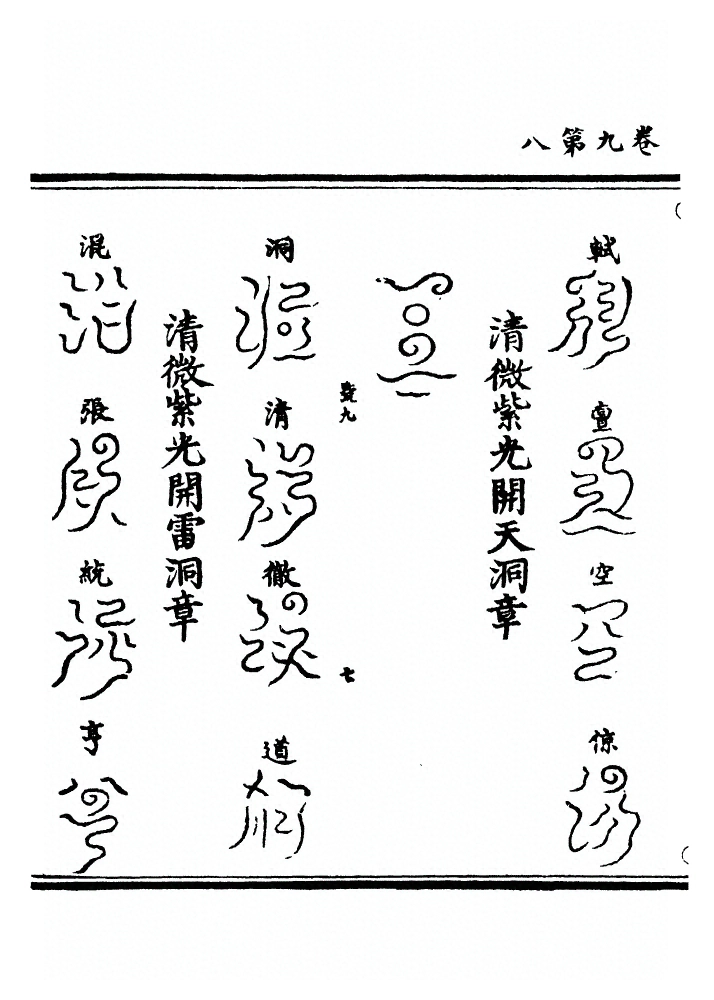 卷九第八
軾亶空倞
清微紫光開天洞章
號九
七
洞清微道
清微紫光開雷洞章
混張統亨